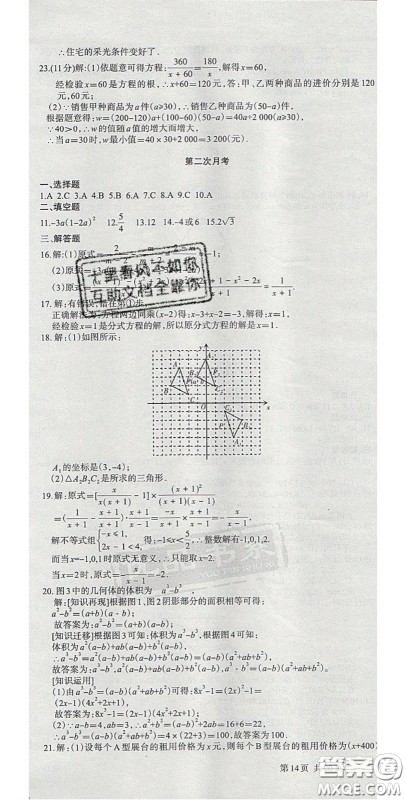 ∴住宅的采光条件变好了.
23.(11分)解:(1)依题意可得方程: 360/(x+60)=180/x,解得x=60,
经检验x=60是方程的根,∴x+60=120元,答:甲、乙两种商品的进价分别是120
元,60元;
(2)∵销售甲种商品为a件(a≥30),∴销售乙种商品为(50-a)件,
根据题意得:w=(200-120)a+(100-60)(50-a)=40a+2 000(a≥30),
∵40>0,∴w的值随a值的增大而增大,
∴当a=30时,w最小值=40×30+2 000=3 200(元).
第二次月考
一、选择题
1.A 2.C 3.A 4.B 5.C 6.C 7.A 8.C 9.C 10.A
二、填空题
11.-3a(1-2a)² 12.5/4 13.12 14.-4或6 15.2√3
三、解答题
16.解:(1)原式=
(2)原式=
17.解:有错误,错在第
正确解法为:方程两边同乘(x-2)得:x-3+x-2=-3,解得:x=1,
经检验x=1是分式方程的解,所以原分式方程的解是x=1.
18.解:(1)如图所示:
A₁的坐标是(3,-4);
(2)△A₂B₂C₂是所求的三角形.
19.解:原式=[x/(x(x+1))-1]×(x+1)²/((x+1)(x-1))
解不等式组{-x≤1 2x-1<4,得:-1≤x<5/2,∴整数解有-1,0,1,2.
而当x=-1,0,1时原式无意义,∴只能取x=2.
当x=2时,原式=
20.图3中的几何体的体积为 a³-b³.
解:[知识再现]根据图1,图2阴影部分的面积相等可得:
a²-b²=(a+b)(a-b);
故答案为:a²-b²=(a+b)(a-b);
[知识迁移]根据图3可知:体积为:a³-b³,根据图4可知:
体积为a²(a-b)+ab(a-b)+b²(a-b),
∴a³-b³=a²(a-b)+ab(a-b)+b²(a-b)=(a-b)(a²+ab+b²),
故答案为:a³-b³=(a-b)(a²+ab+b²);
[知识运用]
(1)由a³-b³=(a-b)(a²+ab+b²)可得:8x³-1=(2x-1)(4x²+2x+1),
故答案为:8x³-1=(2x-1)(4x²+2x+1);
(2)∵a-b=4,ab=3,∴a²+b²=(a-b)²+2ab=16+6=22,
∴a³-b³=(a-b)(a²+ab+b²)=4×(22+3)=100.
21.解:(1)设每个A型展台的租用价格为x元,则每个B型展台的租用价格为(x+400)
第14页
十里春风不如您
互助文档全靠你